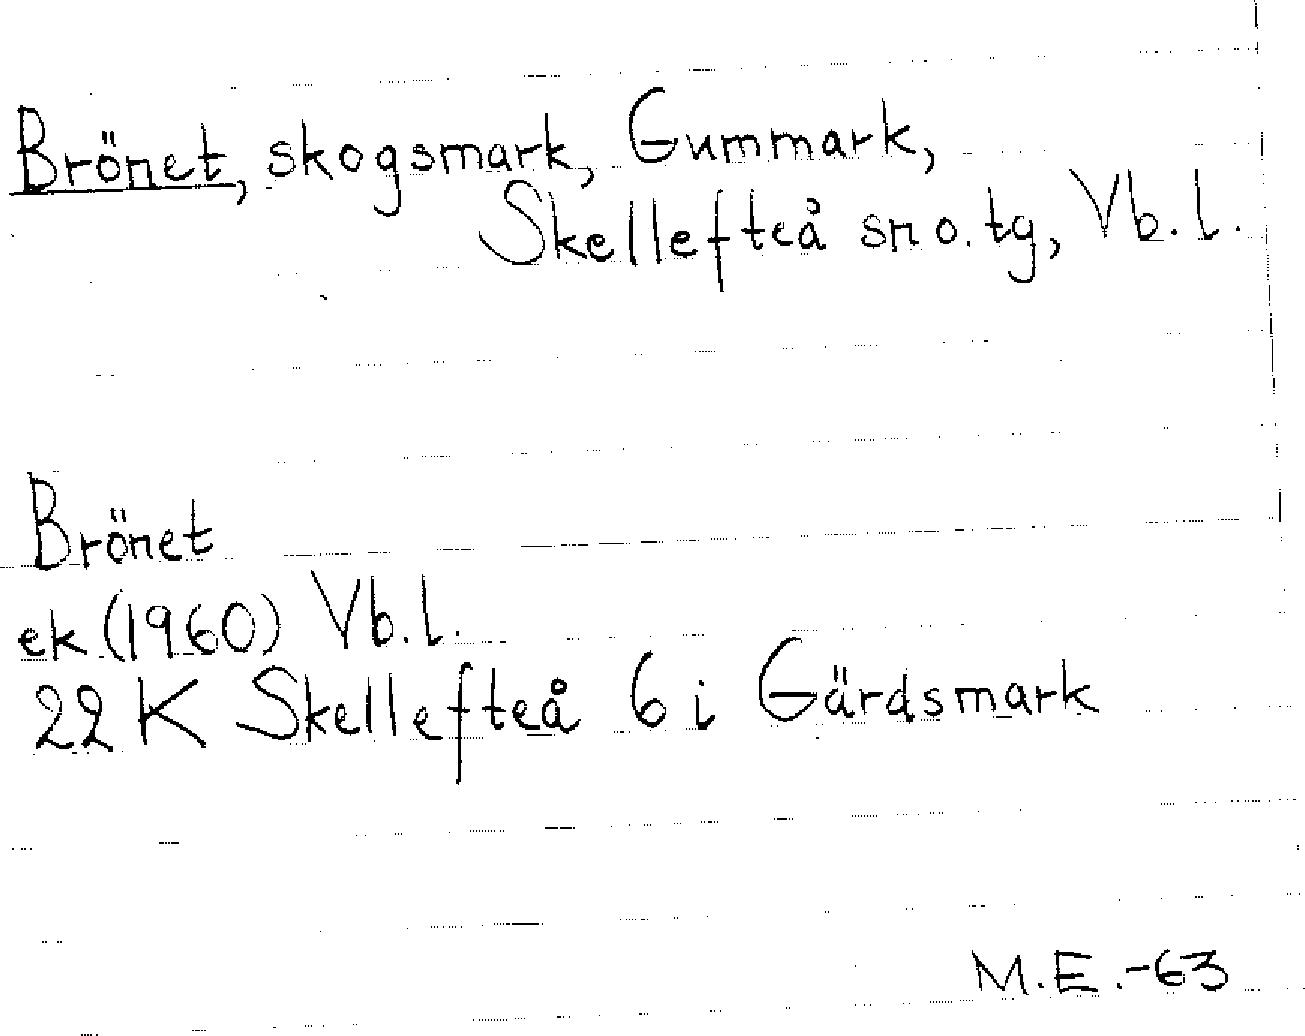 Brönet, skogsmark, Gummark,
Skellefteå sn o. tg, Vb. l.
Brönet
ek (1960) Vb. l.
22 K Skellefteå 6 i Gärdsmark
M.E.-63